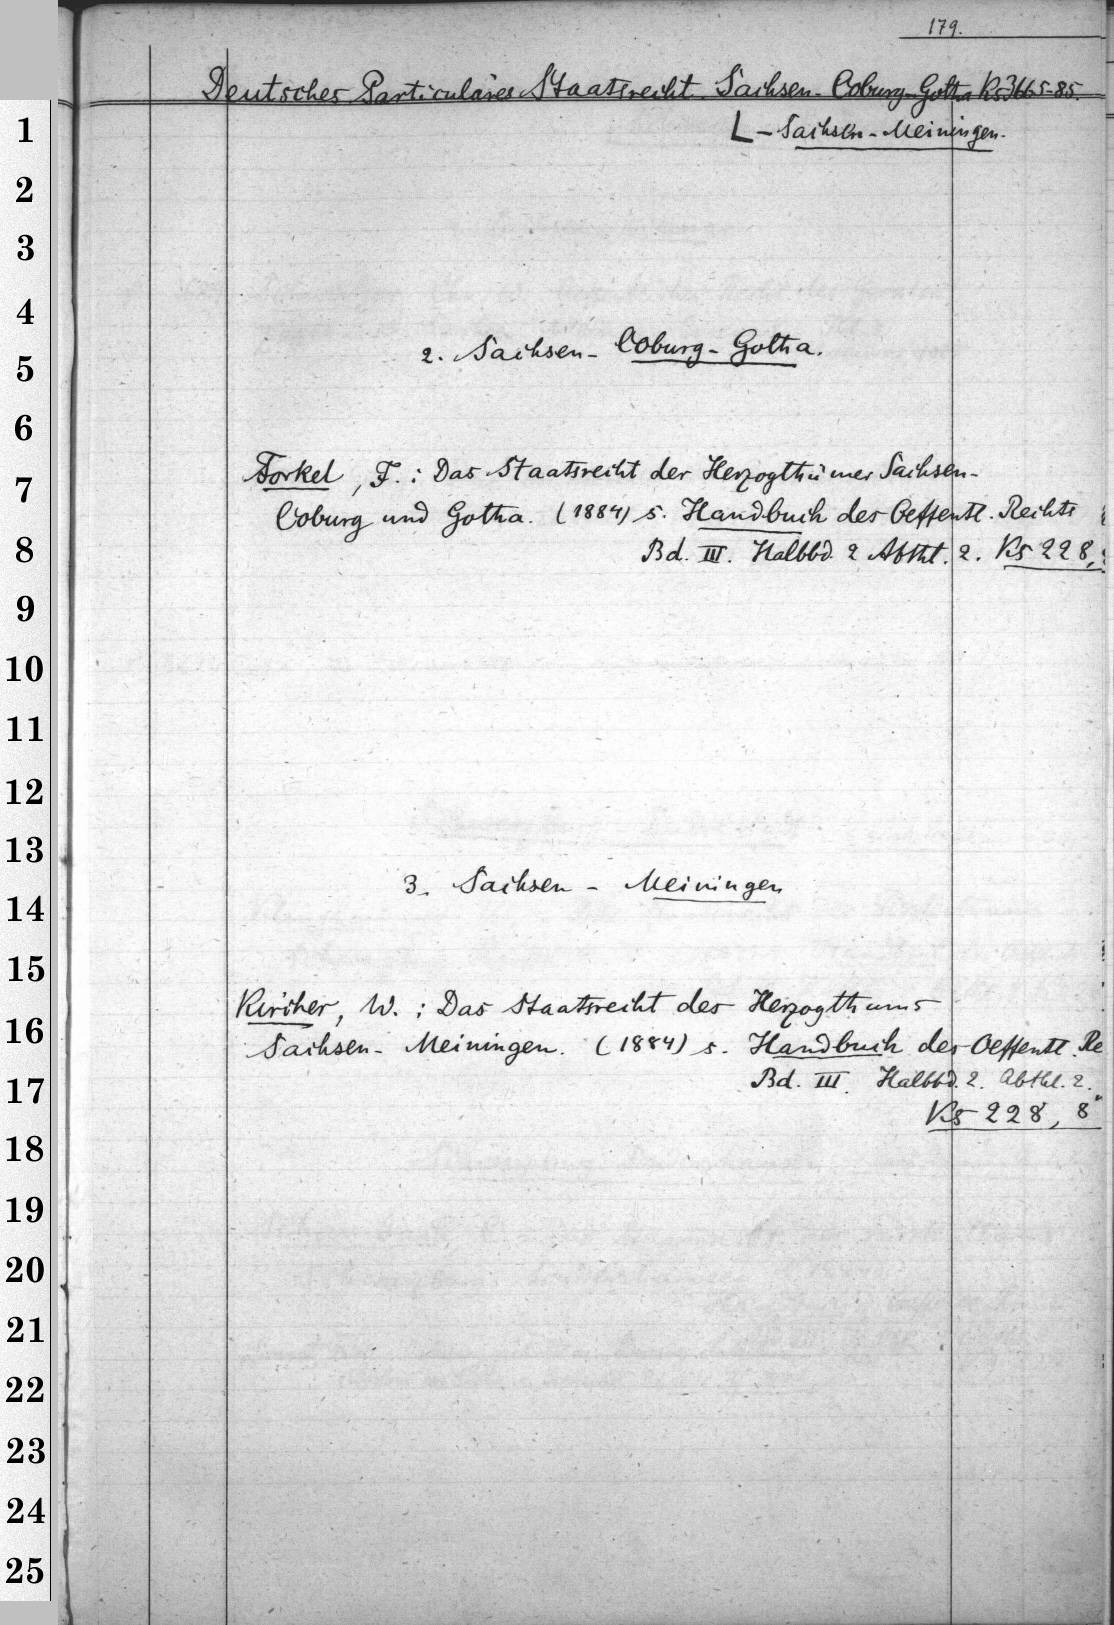 179.
Deutsches Particulares Staatsrecht. Sachsen-Coburg-Gotha Ks 3665-85.
L - Sachsen-Meiningen.
1
2
3
4
2. Sachsen-Coburg-Gotha.
5
6
Forkel, F.: Das Staatsrecht der Herzogthümer Sachsen-
7
Coburg und Gotha. (1884) s. Handbuch des Oeffentl. Rechts
8
Bd. III. Halbbd. 2 Abthl. 2. Ks 228,
9
10
11
12
13
3. Sachsen - Meiningen
14
15
Kircher, W.: Das Staatsrecht des Herzogthums
16
Sachsen-Meiningen. (1884) s. Handbuch des Oeffentl. Re
17
Bd. III. Halbbd. 2. Abthl. 2.
Ks 228, 8°
18
19
20
21
22
23
24
25